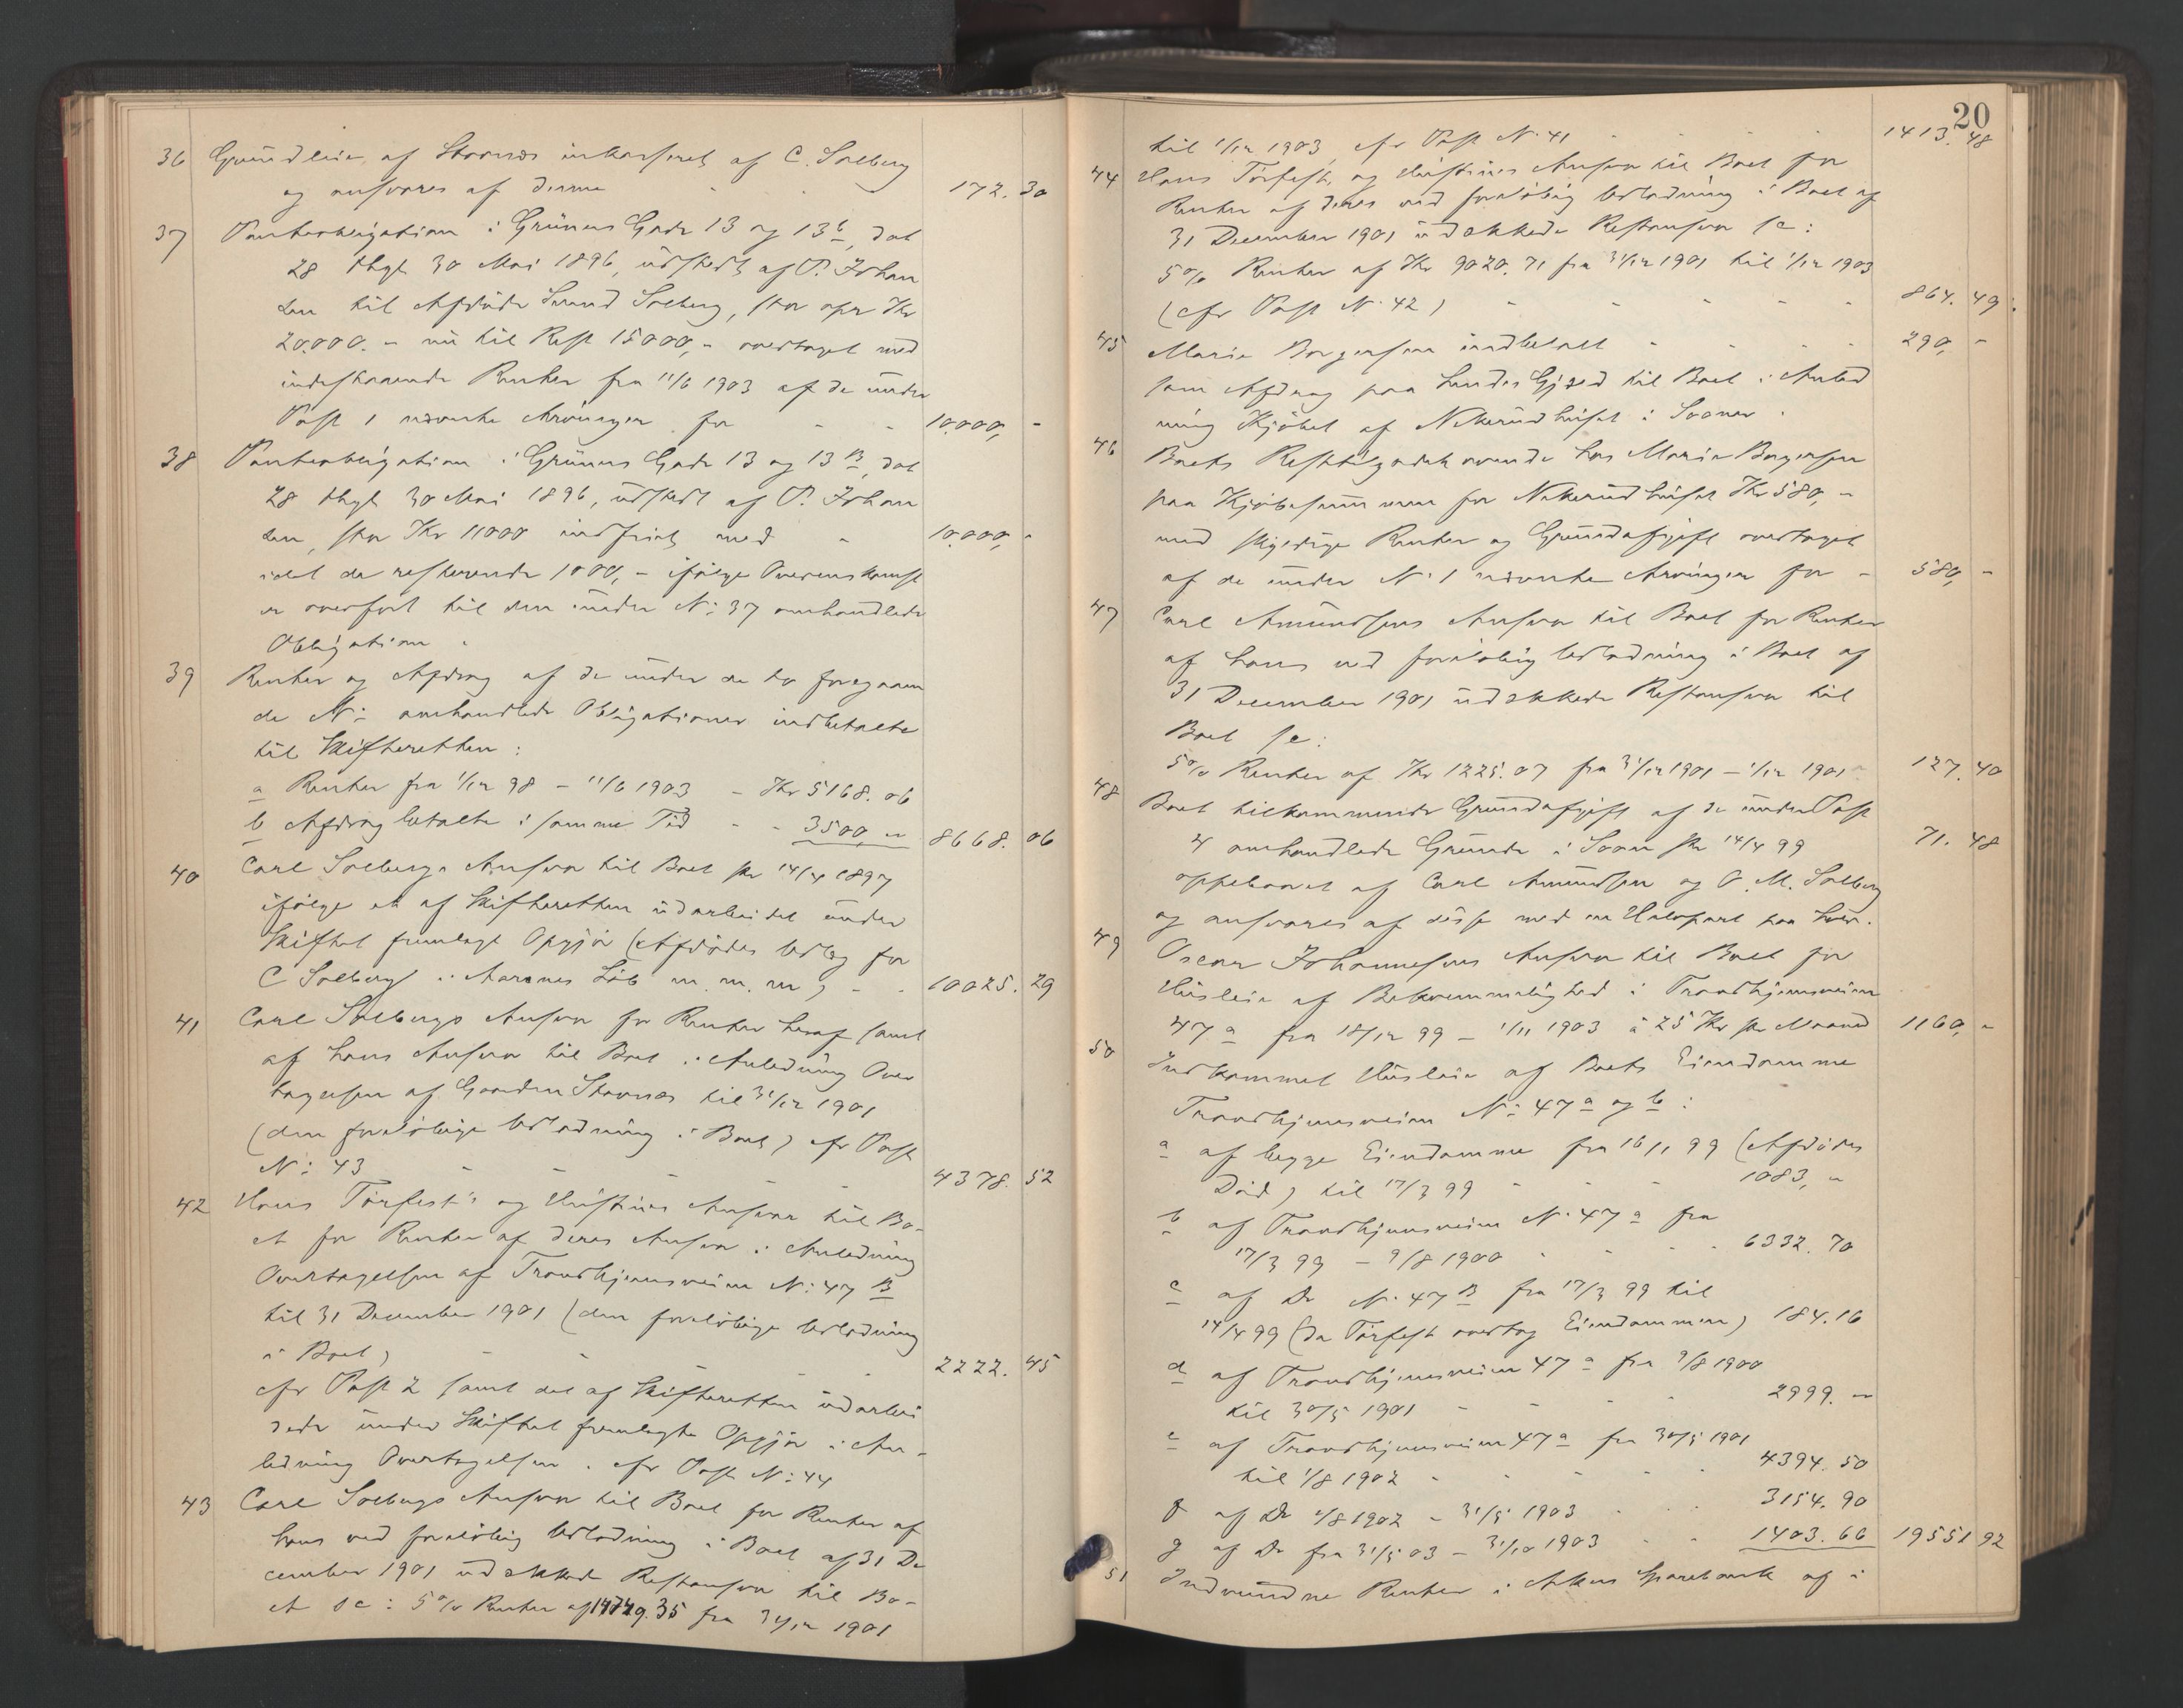 36 Grundleie af Stovnær inkasseret af C. Solberg
og ansvares af denne - - 172. 30
37 Panteobligation i Grüners Gade 13 og 13 b, dat
28 thgl 30 Mai 1896, udstedt af P. Johan
sen til Afdøde Svend Solberg, stor opr Kr
20.000. - nu til Rest 15000,- overtaget med
indestaaende Renter fra 11/6 1903 af de under
Post 1 nævnte Arvinger for - - 10.000, -
38 Panteobligation i Grüners Gade 13 og 13 B, dat
28 thgl 30 Mai 1896, udstedt af P. Johan
sen, stor Kr 11000 indfriet med - 10.000, -
idet de resterende 1000, - ifølge Overenskomst
er overført til den under No 37 omhandlede
Obligation.
39 Renter og Afdrag af de under de to foregaaen
de No omhandlede Obligationer indbetalte
til Skifteretten:
a Renter fra 1/12 98 - 11/6 1903 - Kr 5168. 06
b Afdrag betalte i samme Tid - - 3500, - 8668. 06
40 Carl Solbergs Ansvar til Boet pr 14/4 1897
ifølge et af Skifteretten udarbeidet under
Skiftet fremlagt Opgjør (Afdødes Udlæg for
C Solberg i Aarenes Løb m. m. m) - - 10025. 29
41 Carl Solbergs Ansvar for Renter heraf samt
af hans Ansvar til Boet i Anledning Over
tagelsen af Gaarden Stovnær til 31/12 1901
(den foreløbige Udlodning i Boet) cfr Post
No 43 - - - 4378. 52
42 Hans Tørfest's og Hustrues Ansvar til Bo-
et for Renter af deres Ansvar i Anledning
Overtagelsen af Trondhjemsveien No 47 B
til 31 December 1901 (den foreløbige Udlodning
i Boet) - - - - 2222. 45
cfr Post 2 samt det af Skifteretten udarbei
dede under Skiftet fremlagte Opgjør i An-
ledning Overtagelsen. cfr Post No 44
43 Carl Solbergs Ansvar til Boet for Renter af
hans ved foreløbig Udlodning i Boet af 31 De
cember 1901 udækkede Restansvar til Bo-
et sc: 5 % Renter af 14729.35 fra 31/12 1901
20
til 1/12 1903, cfr Post No 41 - - - 1413. 48
44 Hans Tørfest, og Hustrues Ansvar til Boet for
Renter af deres ved foreløbig Udlodning i Boet af
31 December 1901 udækkede Restansvar sc:
5 % Renter af Kr 9020. 71 fra 31/12 1901 til 1/12 1903
(cfr Post No 42) - - - - - 864. 49.
45 Marie Borgersen indbetalt - - - - 290, -
som Afdrag paa hendes Gjæld til Boet i Anled
ning Kjøbet af Nekerudhuset i Soner.
46 Boets Resttilgodehavende hos Marie Borgersen
paa Kjøbesummen for Nekerudhuset Kr 580, -
med skyldige Renter og Grundafgift overtaget
af de under No 1 nævnte Arvinger for - 580, -
47 Carl Amundsens Ansvar til Boet for Renter
af hans ved foreløbig Udlodning i Boet af
31 December 1901 udækkede Restansvar til
Boet sc:
5 % Renter af Kr 1225. 07 fra 31/12 1901 - 1/12 1901 - 127. 40
48 Boet tilkommende Grundafgift af de under Post
4 omhandlede Grunde i Soon pr 14/4 99 71. 48
oppebaaret af Carl Amundsen og O. M. Solberg
og ansvares af disse med en Halvpart paa hver.
49 Oscar Johannesens Ansvar til Boet for
Husleie af Bekvemmelighed i Trondhjemsveien
47 a fra 18/12 99 - 1/11 1903 à 25 Kr pr Maaned 1160, -
50 Indkommet Husleie af Boets Eiendomme
Trondhjemsveien No 47 a og b:
a af begge Eiendomme fra 16/1 99 (Afdødes
Død) til 17/3 99 - - - 1083, -
b af Trondhjemsveien No 47 a fra
17/3 99 - 9/8 1900 - - - - 6332. 70
c af Do No 47 B fra 17/3 99 til
14/4 99 (da Tørfest overtog Eiendommen) 184. 16
d af Trondhjemsveien 47 a fra 9/8 1900
til 30/5 1901 - - - - 2999. -
e af Trondhjemsveien 47 a fra 30/5 1901
til 1/8 1902 - - - - - 4394. 50
f af Do 1/8 1902 - 31/5 1903 - - 3154. 90
g af Do fra 31/5 03 - 31/10 1903 - - 1403. 66 19551 92
51 Indvundne Renter i Akers Sparebank af i